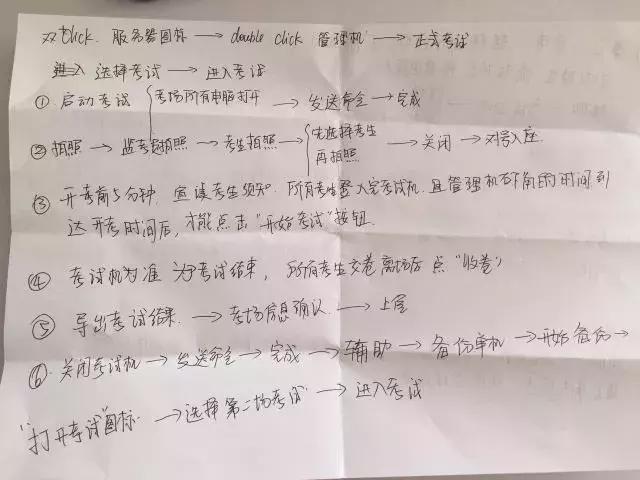 双击click. 服务器图标 → double click 管理机 → 正式考试
进入 选择考试 → 进入考试
① 启动考试 { 考场所有电脑打开 → 发送命令 → 完成
② 拍照 → 监考员拍照 → 考生拍照 → { 先选择考生 再拍照 → 关闭 → 对号入座
③ 开考前5分钟, 宣读考生须知. 所有考生登入完考试机. 且管理机右下角的时间到
达开考时间后, 才能点击"开始考试"按钮.
④ 考试机为准 为考试结束, 所有考生交卷离场后 点"收卷"
⑤ 导出考试结果. → 考场信息确认. → 上层
⑥ 关闭考试机 → 发送命令 → 完成 → 辅助 → 备份单机 → 开始备份 →
"打开考试"图标. → 选择第二场考试 → 进入考试